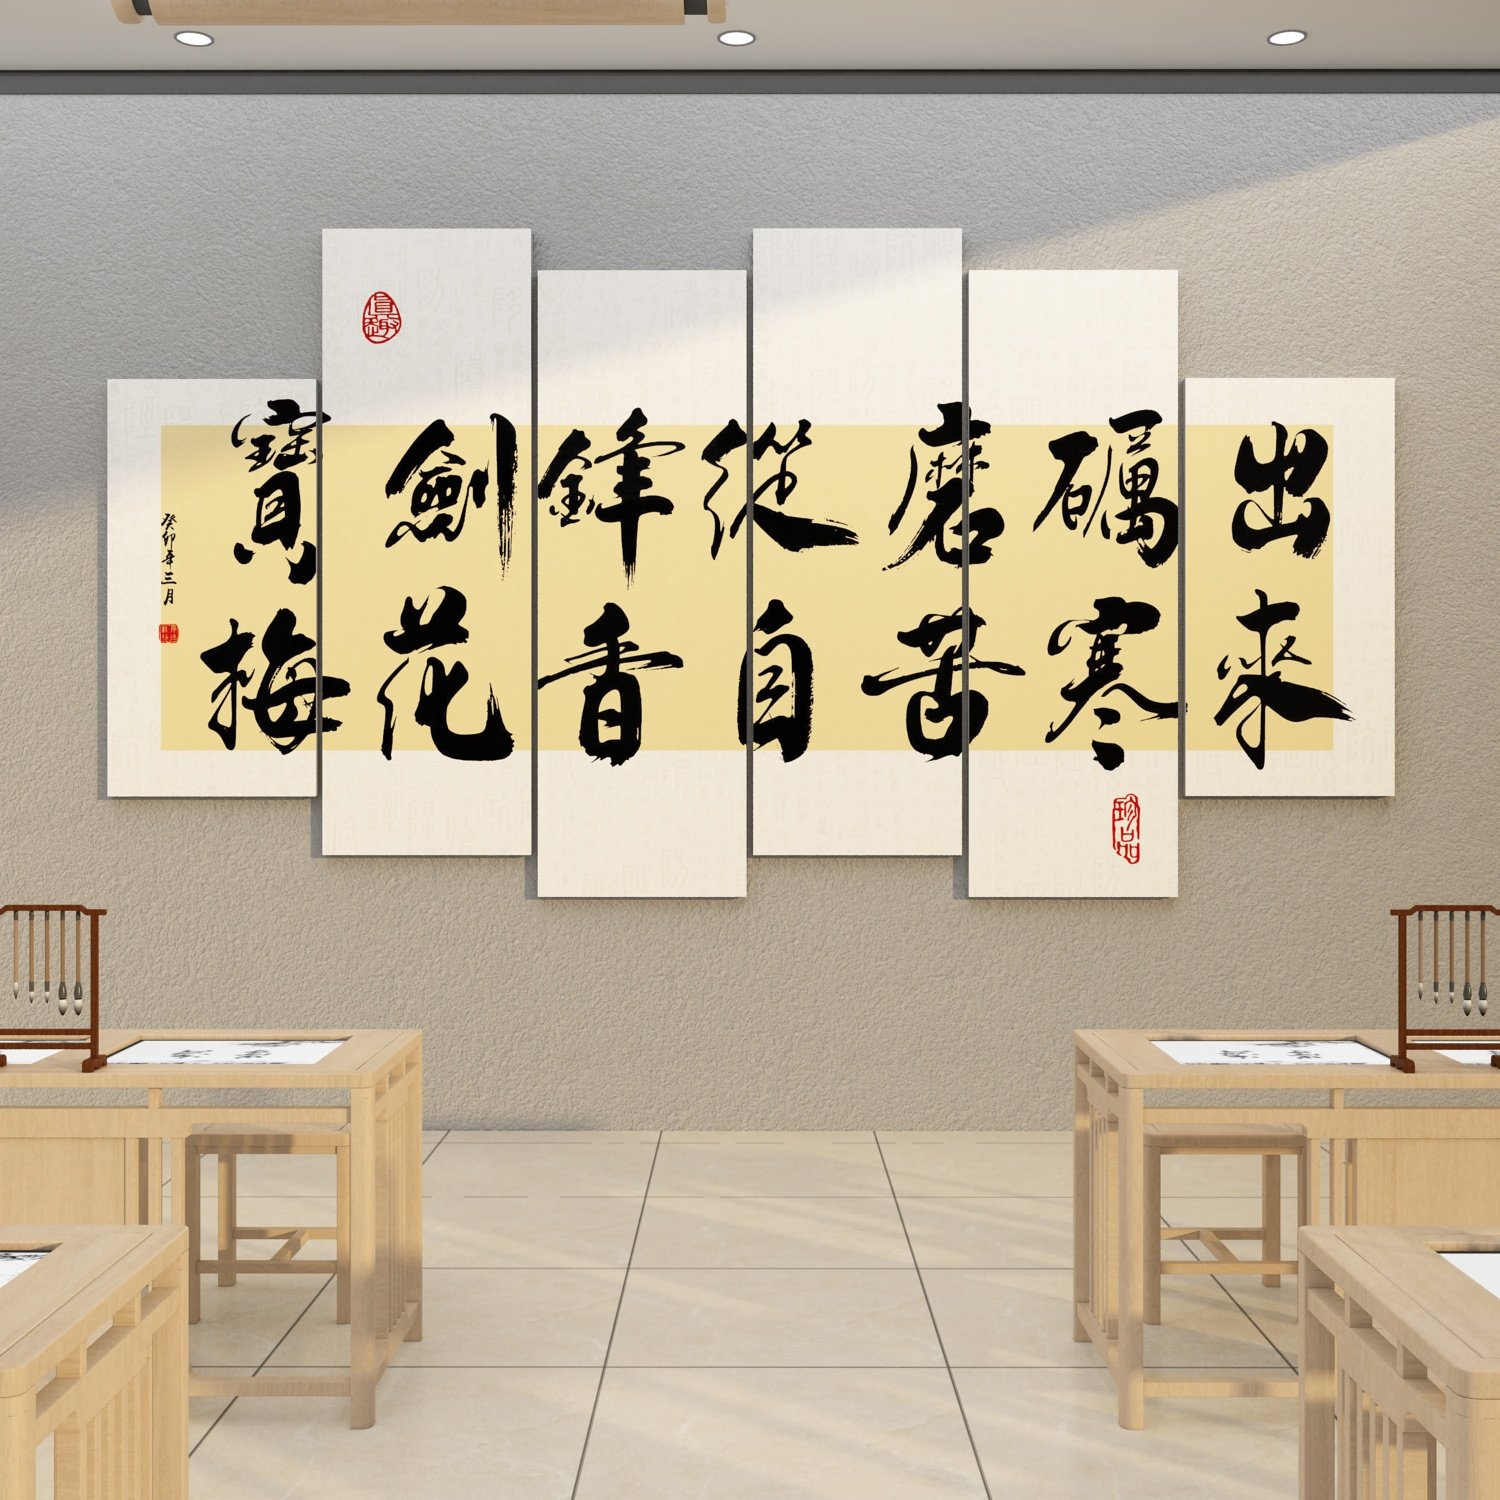 寶劍鋒從磨礪出
梅花香自苦寒來
癸卯年三月
真趣
珍品